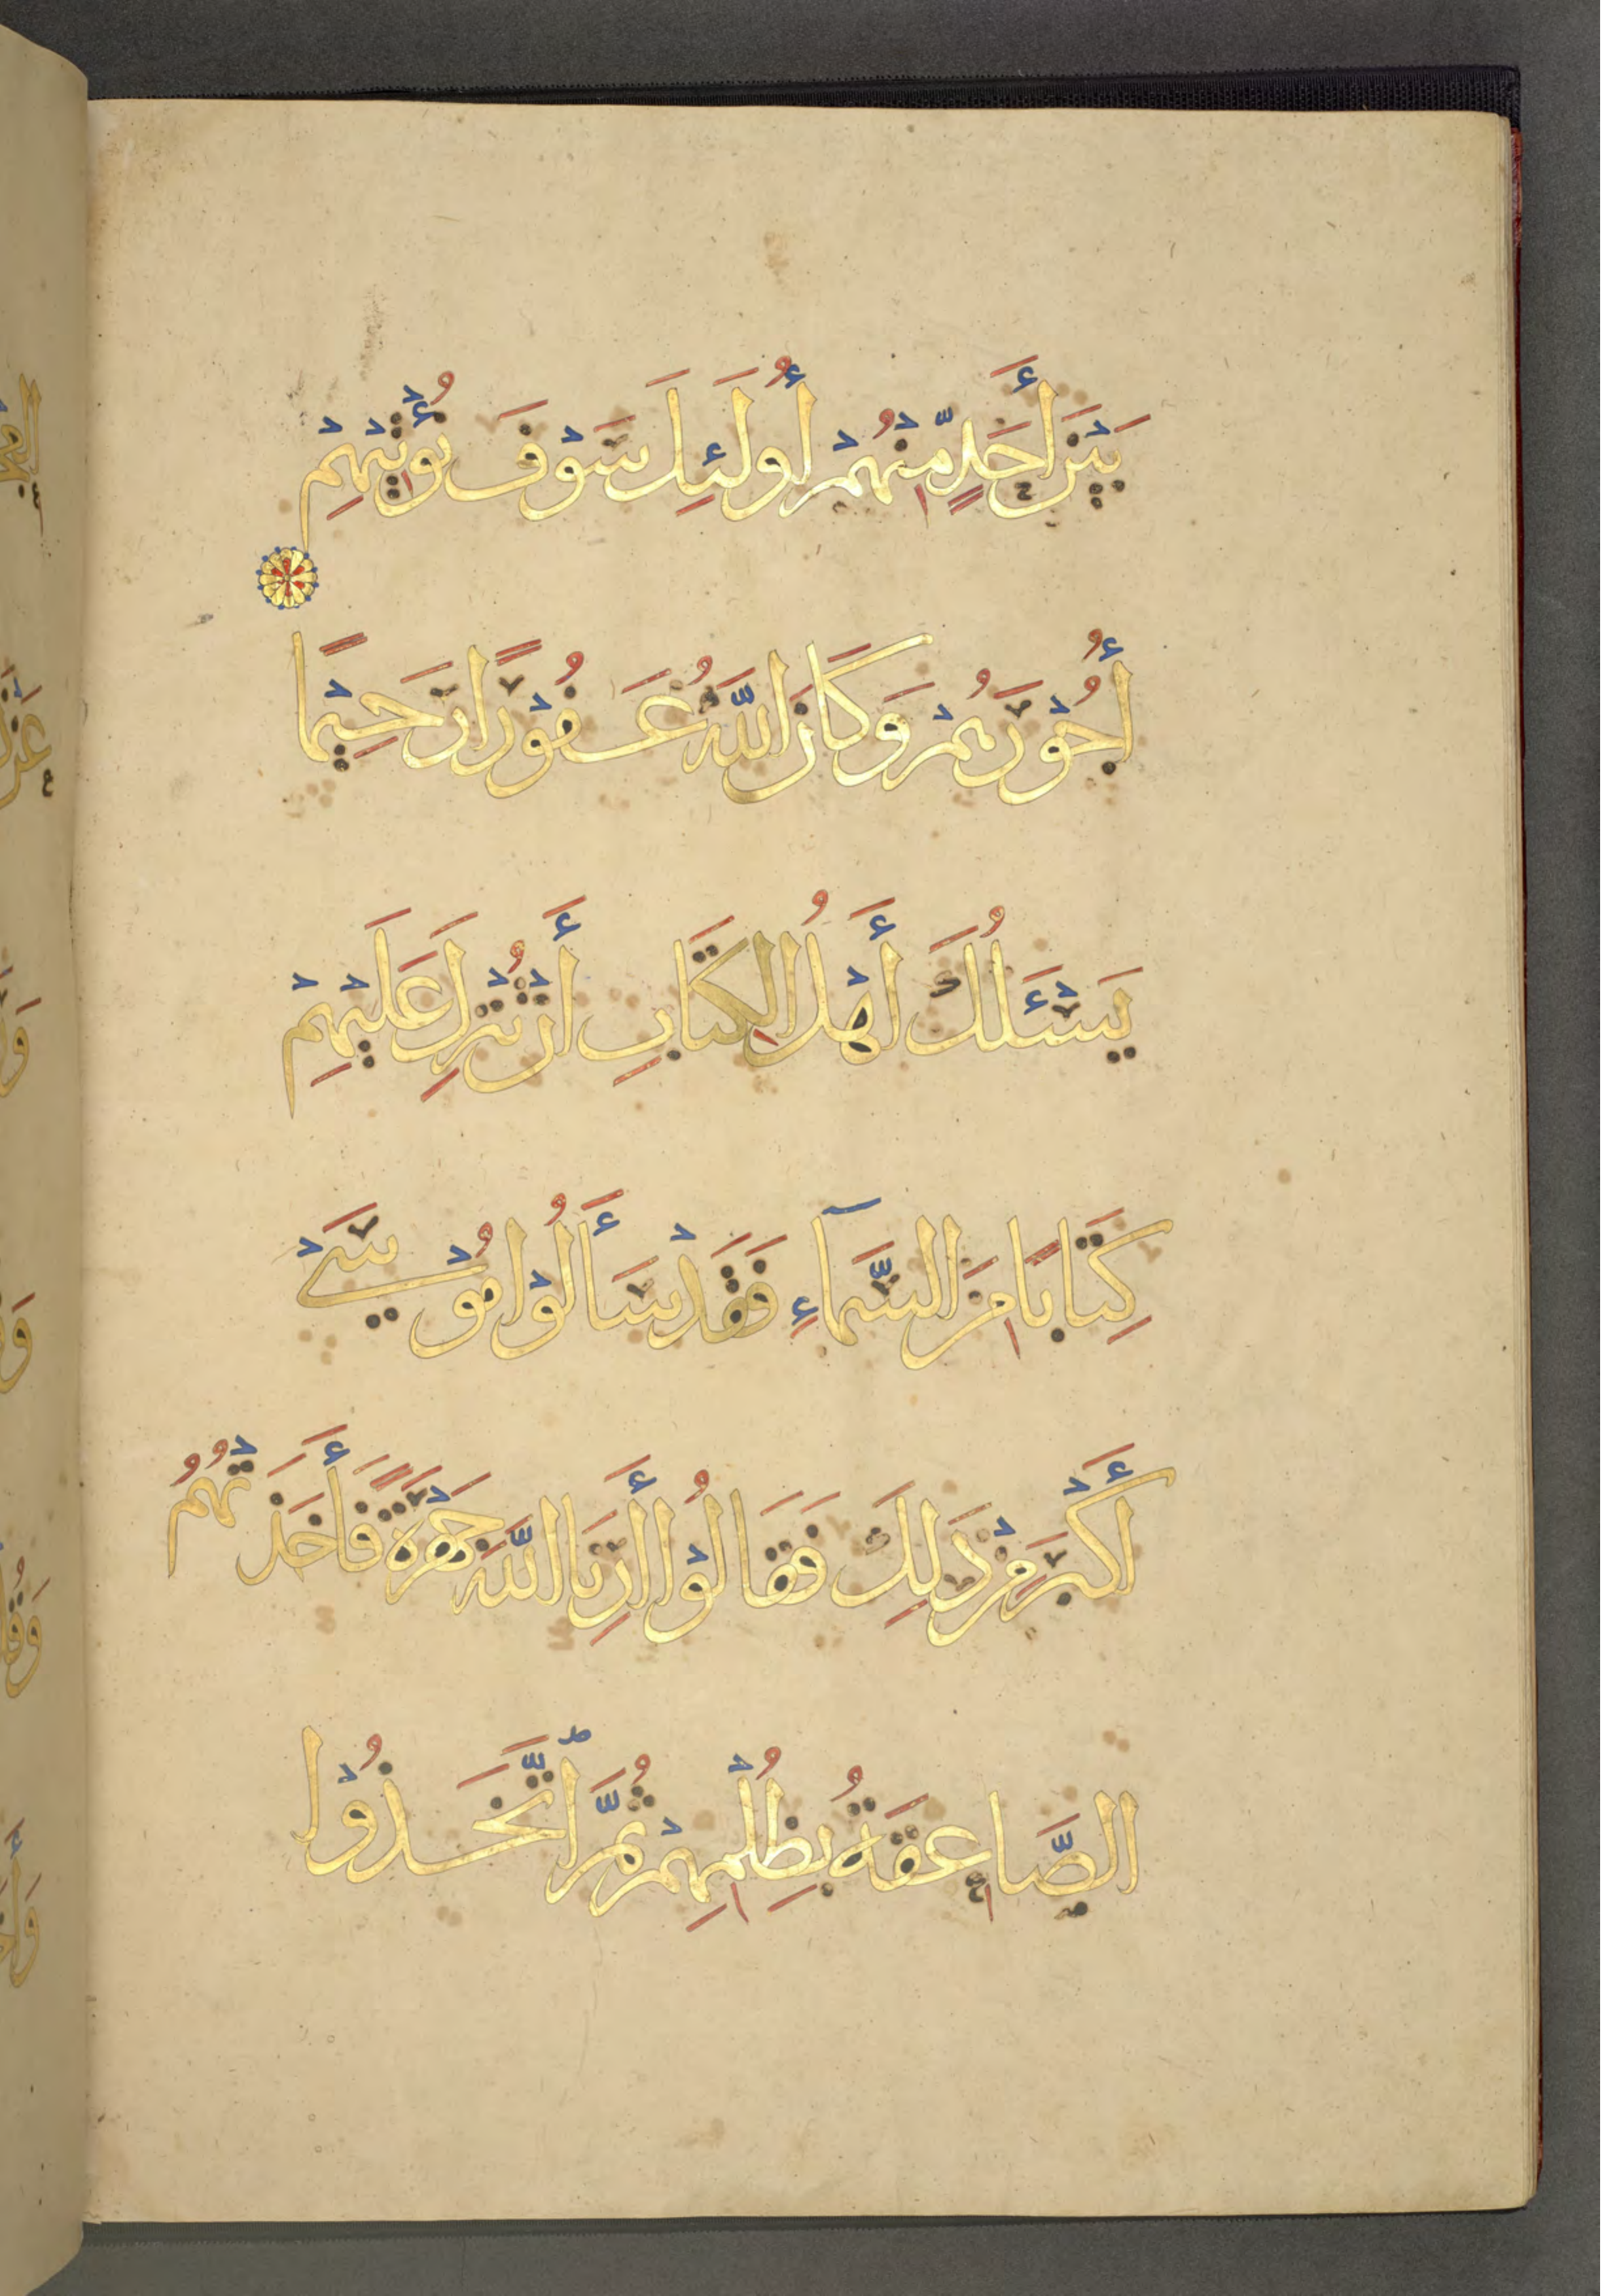 بَيْنَ أَحَدٍ مِّنْهُمْ أُولَئِكَ سَوْفَ نُؤْتِيْهِمْ
أُجُوْرَهُمْ وَكَانَ اللَّهُ غَفُوْرًا رَحِيْمًا
يَسْئَلُكَ أَهْلُ الكِتَابِ أَنْ تُنْزِلَ عَلَيْهِمْ
كِتَابًا مِنَ السَّمَآءِ فَقَدْ سَأَلُوْا مُوْسَيْ
أَكْبَرَ مِنْ ذَلِكَ فَقَالُوْا أَرِنَا اللَّهَ جَهْرَةً فَأَخَذَتْهُمُ
الصَّاعِقَةُ بِظُلْمِهِمْ ثُمَّ اتَّخَذُوْا